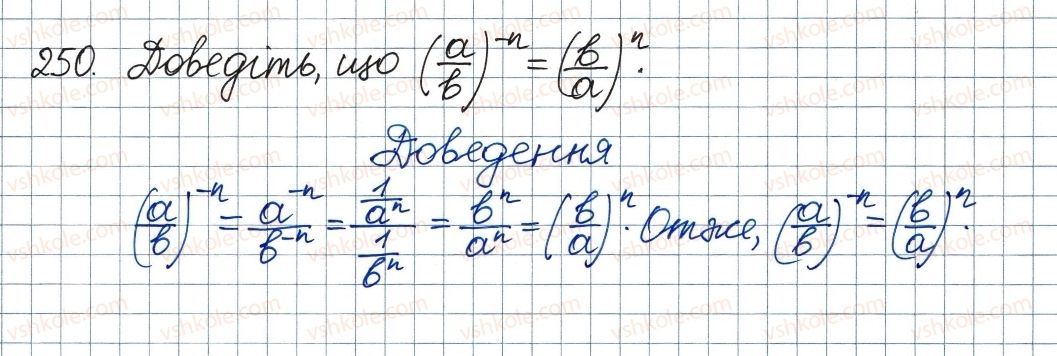 250. Доведіть, що (a/b)^-n = (b/a)^n.
Доведення
(a/b)^-n = a^-n/b^-n = (1/a^n)/(1/b^n) = b^n/a^n = (b/a)^n. Отже, (a/b)^-n = (b/a)^n.